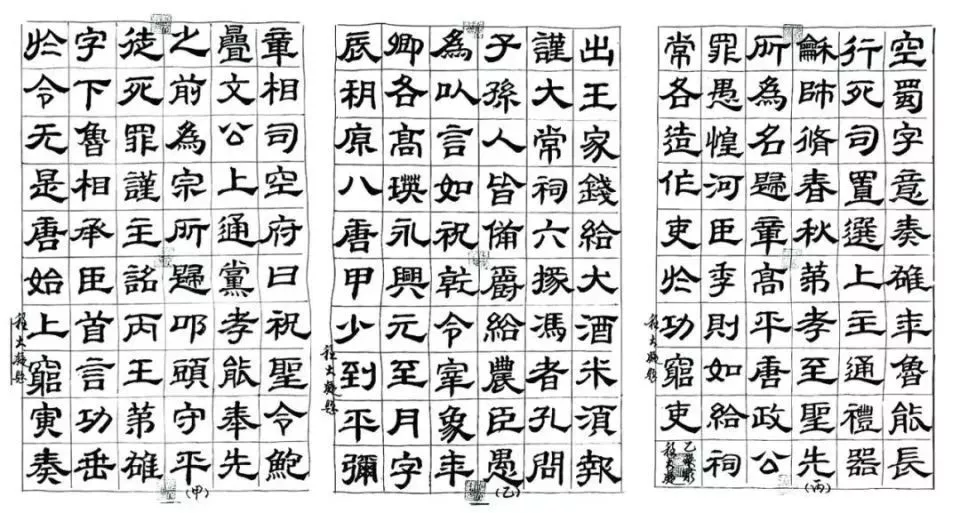 章相司空府曰祝聖令鮑
疊文公上通黨孝能奉先
之前為宗所歸叩頭守平
徒死罪謹主詺丙王第雄
字下魯相承臣首言功垂
於令无是唐始上窮寅奏
(甲)
出王家錢給犬酒米須報
謹大常祠六掾馮者孔問
子孫人皆備爵給農臣愚
為以言如祝乾令宰象年
卿各高瑛永興元至月字
辰朔原八唐甲少到平彌
(乙)
空蜀字意奏雄年魯能長
行死司置選上主通禮器
龢師脩春秋第孝至聖先
所為名歸章高平唐政公
罪愚惶河臣季則如給祠
常各造作吏於功窮吏
(丙)